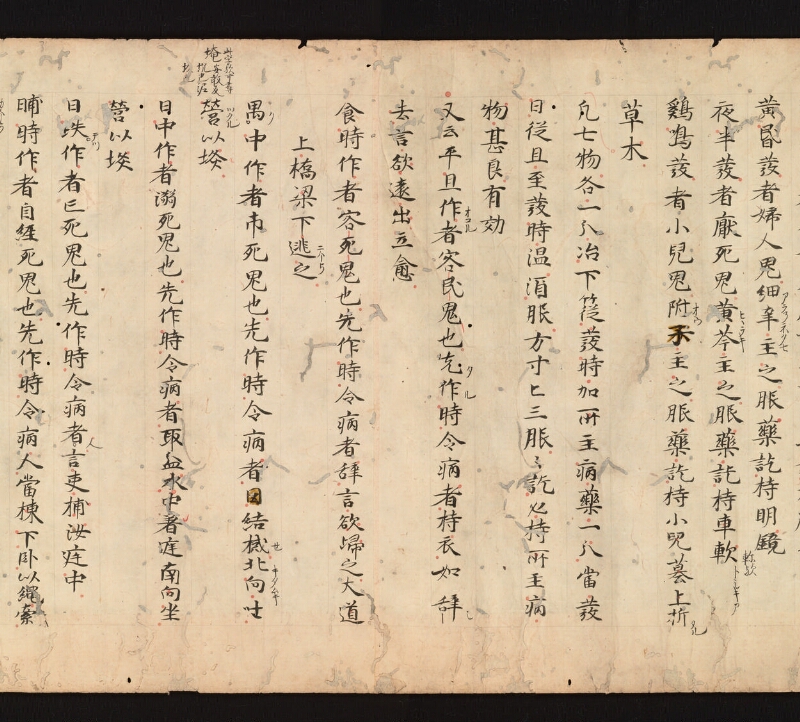 黄昏發者婦人鬼細辛主之服藥訖持明鏡
夜半發者厭死鬼黄芩主之服藥訖持車軟
鷄鳴發者小兒鬼附子主之服藥訖持小兒墓上折
草木
凡七物各一分冶下篵發時加所主病藥一分當發
日從旦至發時温酒服方寸匕三服々訖必持所主病
物甚良有効
又云平旦作者客民鬼也先作時令病者持衣如辞
去言欲遠出立愈
食時作者客死鬼也先作時令病者辞言欲歸之大道
上橋梁下逃之
禺中作者市死鬼也先作時令病者因結械北向吐
營以埮
日中作者溺死鬼也先作時令病者取盆水中着庭南向坐
營以埮
日昳作者亡死鬼也先作時令病者言吏捕汝庭中
晡時作者自經死鬼也先作時令病人當棟下卧以縄索